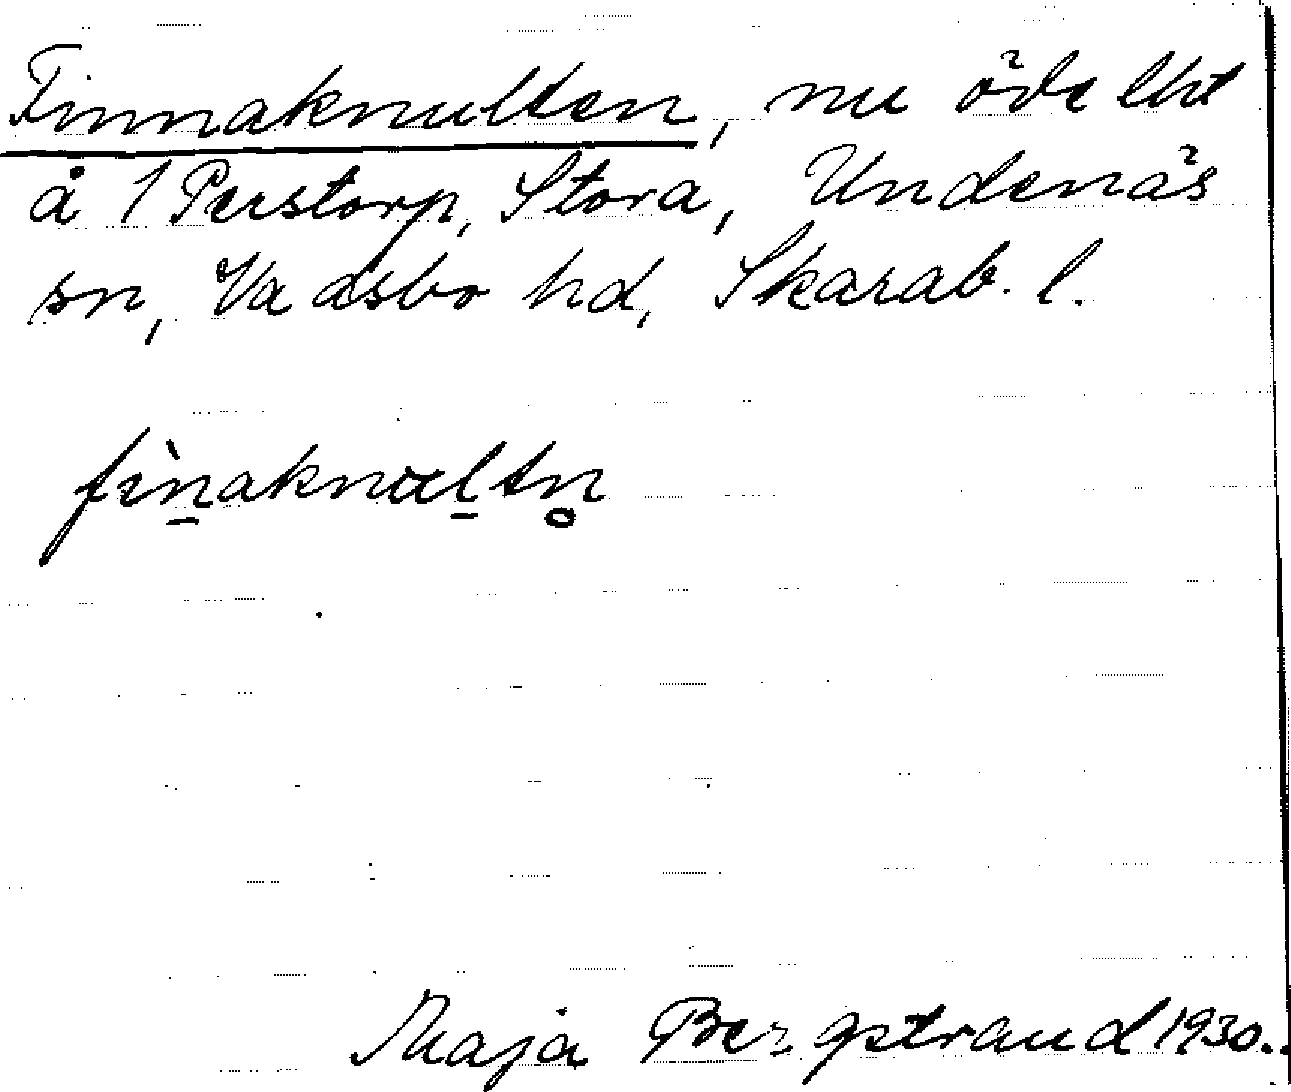 Finnaknulten, nu öde lht
å 1 Perstorp, Stora, Undenäs
sn, Vadsbo hd, Skarab. l.
fìn̠aknul̠tn̥
Maja Bergstrand 1930.